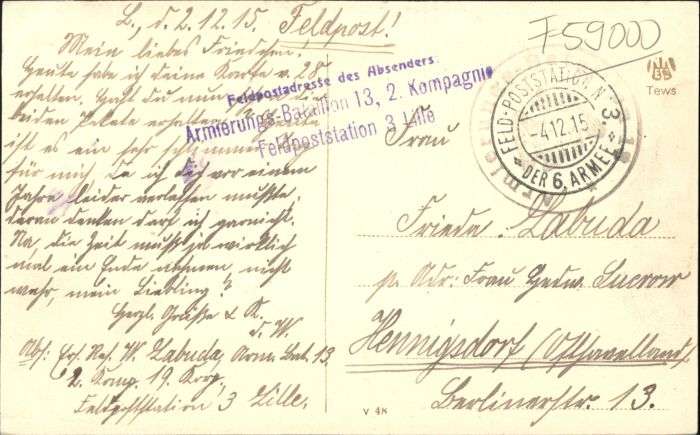 L., d. 2.12.15. Feldpost!
Mein liebes Friedchen!
Heute habe ich deine Karte v. 28.
erhalten. Hast du nun
beiden Pakete erhalten?
ist es ein sehr schlimmer
für mich. Da ich dich vor einem
Jahre leider verlassen mußte,
daran denken darf ich garnicht.
Na, die Zeit muß ja wirklich
mal ein Ende nehmen, nicht
wahr, mein Liebling?
Herzl. Grüße & K.
d. W.
Abs: Ers. Res. W. Labuda, Arm. Bat. 13
2. Komp. 19. Korp.
Feldpoststation 3 Lille.
Feldpostadresse des Absenders:
Armierungs-Bataillon 13, 2. Kompagnie
Feldpoststation 3 Lille
F59000
FELD-POSTSTATION No 3
-4.12.15
DER 6. ARMEE
Tews
Frau
Frieda Labuda
p. Adr: Frau Hedw. Sucrow
Hennigsdorf (Osthavelland)
Berlinerstr. 13.
V 48